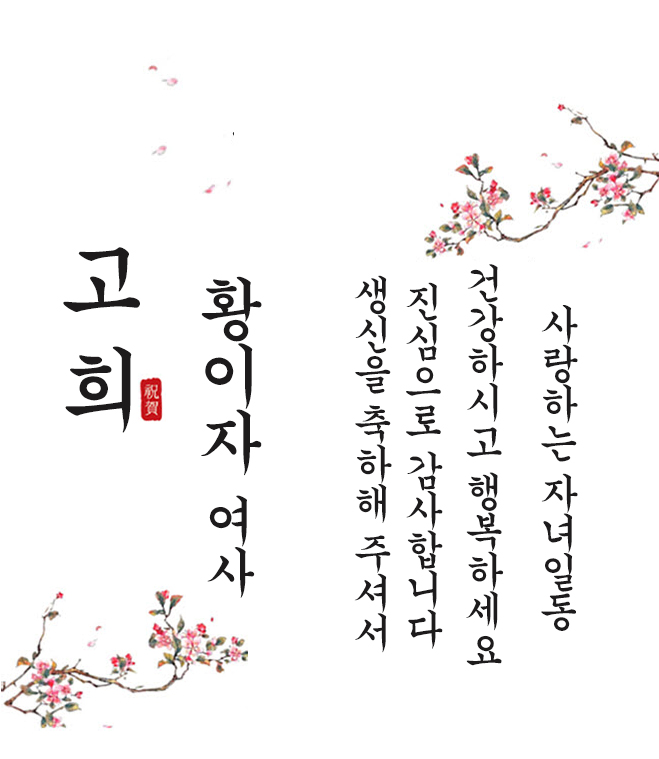 고희
祝賀
황이자 여사
생신을 축하해 주셔서
진심으로 감사합니다
건강하시고 행복하세요
사랑하는 자녀일동